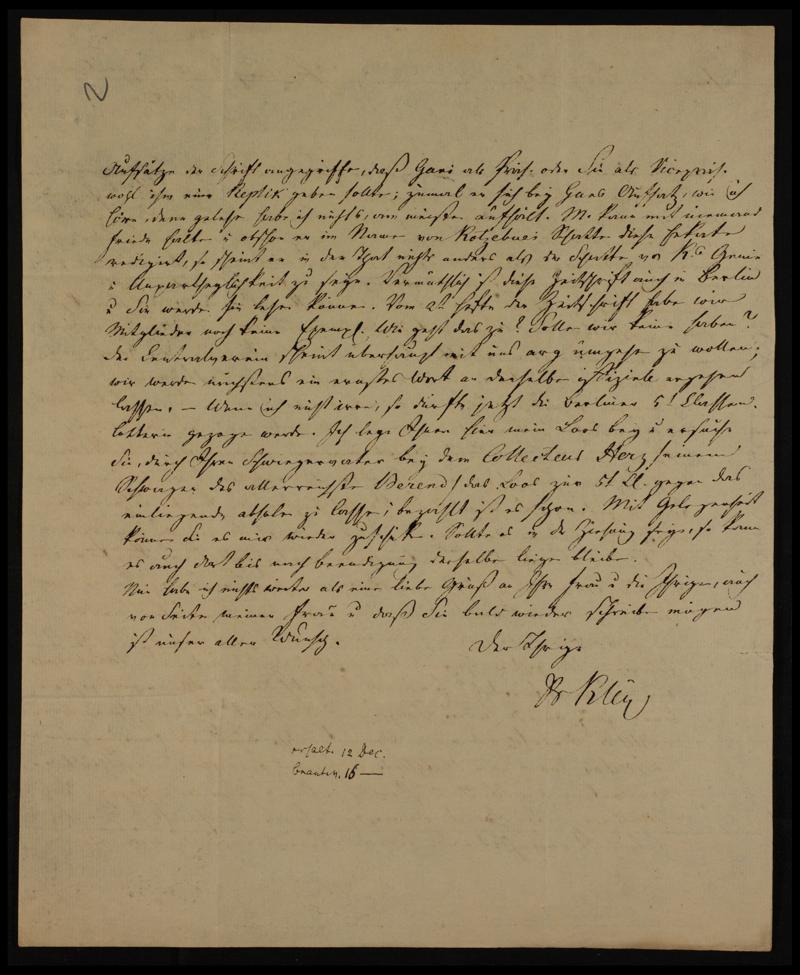 2
Aufsätze der Schrift angegriffen, daß Gans als Präs. oder Sie als Vicepräs.
wohl ihm eine Replik geben sollte; zumal er sich bey Gans Aufsatz, wie ich
höre, denn gelesen habe ich nichts, am meisten aufhält. M. kann mit niemand
Frieden halten u obschon er im Namen von Kotzebues Schatten diese
redigirt, so scheint er in der That nichts anders als der Schatten von K's Genie
u Unpartheylichkeit zu seyn. Vermuthlich ist diese Zeitschrift auch in Berlin
u Sie werden sie lesen können. Vom 2t Hefte der Zeitschrift haben wir
Mitglieder noch keine Exempl. Wie geht das zu? Sollen wir keine haben?
Der Centralverein scheint überhaupt mit uns arg umgehen zu wollen;
wir werden nächstens ein ernstes Wort an denselben offiziell ergehen
lassen. – Wenn ich nicht irre, so dürfte jetzt die Berliner 5t Classen-
lotterie gezogen werden. Ich lege Ihnen hier mein Loos bey u ersuche
Sie, durch Ihren Schwiegervater bey dem Collecteur Herz seinem
Schwager des allerreichsten Berend / das Loos zur 5t Cl. gegen das
einliegende abholen zu lassen; bezahlt ist es schon. Mit Gelegenheit
können Sie es mir wieder zuschicken. Sollte es in der Ziehung seyn, so kann
es auch dort bis nach Beendigung derselben liegen bleiben.
Nun habe ich nichts weiter als einen lieben Gruß an Ihre Frau u die Ihrigen, auch
von Seiten meiner Frau u daß Sie bald wieder schreiben mögen
ist unser aller Wunsch.
Der Ihrige
Dr Kley
erhalt. 12 Dec.
beantw. 16 —